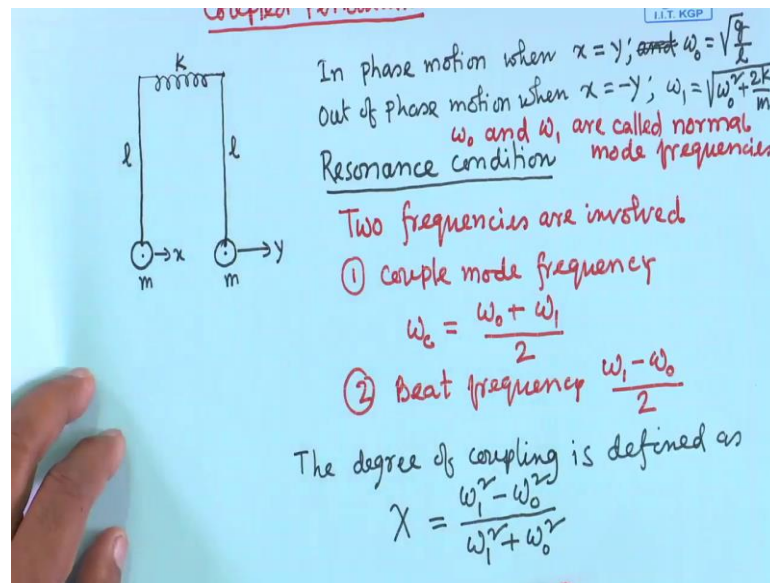 Coupled Pendulum
I.I.T. KGP
k
l
l
x
y
m
m
In phase motion when x = y; and ω₀ = √(g/l)
Out of phase motion when x = -y; ω₁ = √(ω₀² + 2k/m)
ω₀ and ω₁ are called normal
mode frequencies
Resonance condition
Two frequencies are involved
① Couple mode frequency
ω_c = (ω₀ + ω₁)/2
② Beat frequency (ω₁ - ω₀)/2
The degree of coupling is defined as
X = (ω₁² - ω₀²)/(ω₁² + ω₀²)